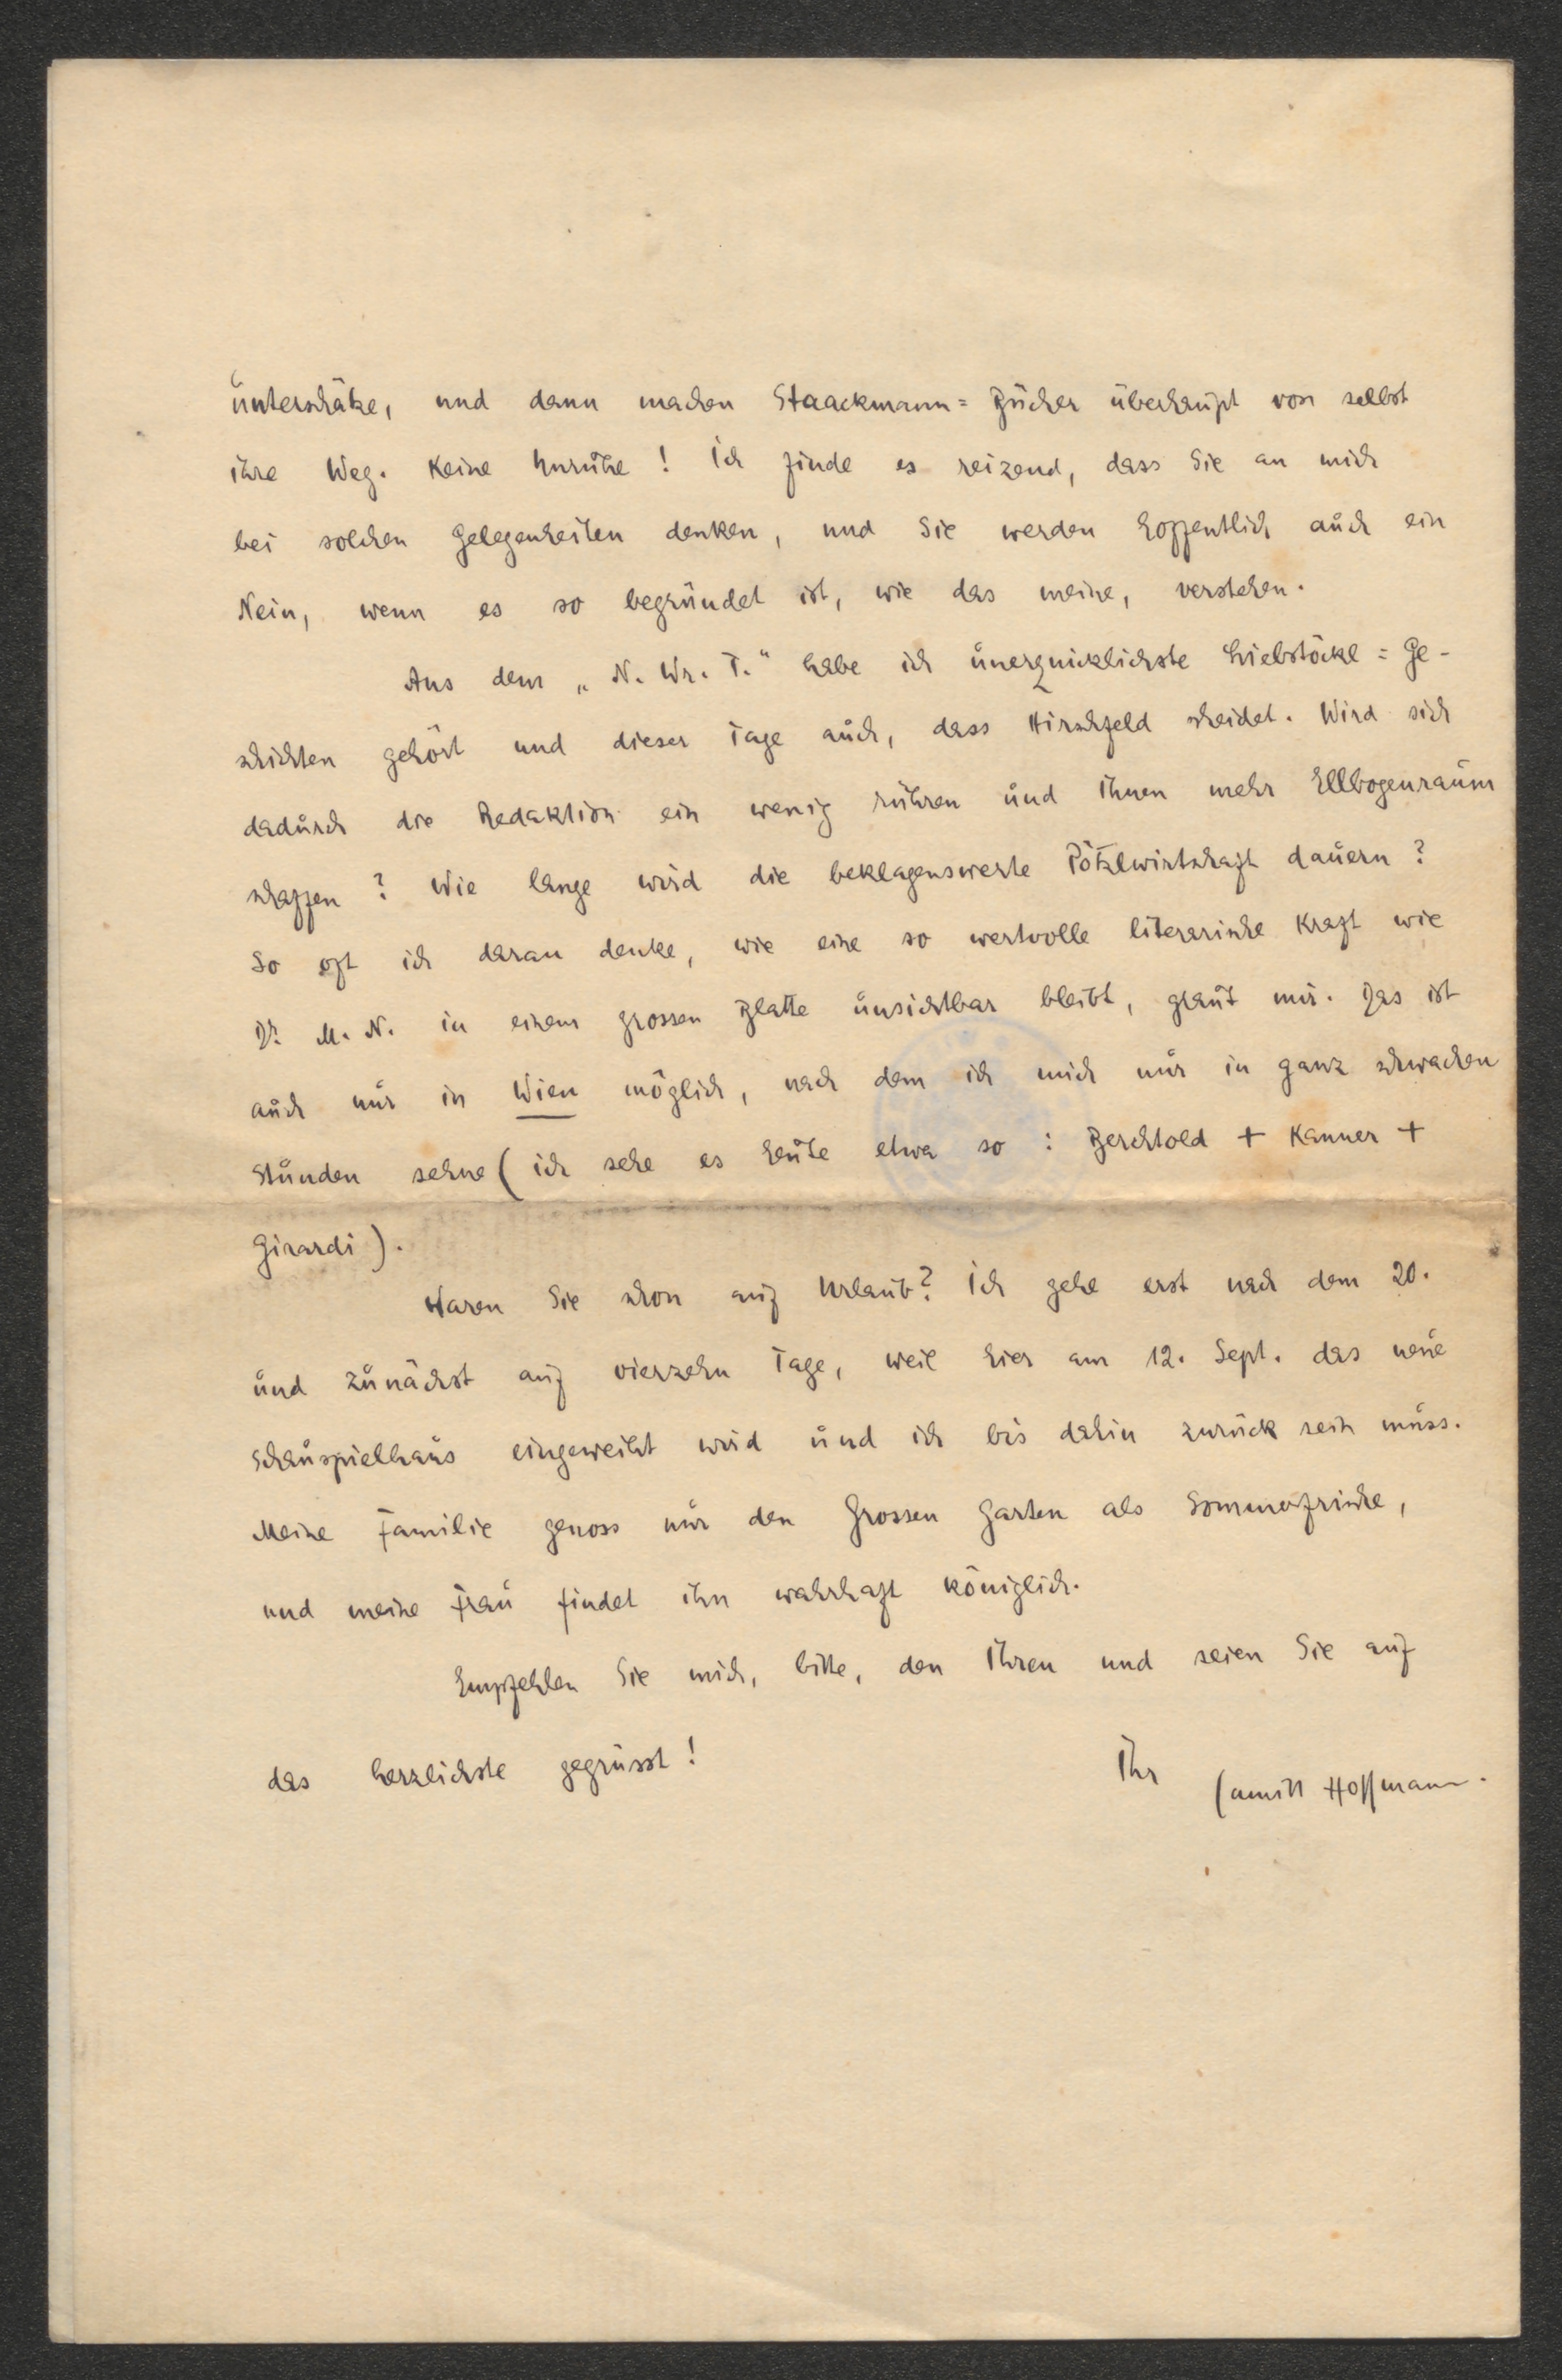 unterschätze, und dann machen Staackmann=Bücher überhaupt von selbst
ihre Weg. Keine Unruhe! Ich finde es reizend, dass Sie an mich
bei solchen Gelegenheiten denken, und Sie werden hoffentlich auch ein
Nein, wenn es so begründet ist, wie das meine, verstehen.
Aus dem „N. Wr. T." habe ich unerquicklichste Liebstöckl=Ge-
schichten gehört und dieser Tage auch, dass Hirschfeld scheidet. Wird sich
dadurch die Redaktion ein wenig rühren und Ihnen mehr Ellbogenraum
schaffen? Wie lange wird die beklagenswerte Pötzlwirtschaft dauern?
So oft ich daran denke, wie eine so wertvolle literarische Kraft wie
Dr. M. N. in einem grossen Blatte unsichtbar bleibt, graut mir. Das ist
auch nur in Wien möglich, nach dem ich mich nur in ganz schwachen
Stunden sehne (ich sehe es heute etwa so: Berchtold + Kanner +
Girardi).
Waren Sie schon auf Urlaub? Ich gehe erst nach dem 20.
und zunächst auf vierzehn Tage, weil hier am 12. Sept. das neue
Schauspielhaus eingeweiht wird und ich bis dahin zurück sein muss.
Meine Familie genoss nur den Grossen Garten als Sommerfrische,
und meine Frau findet ihn wahrhaft königlich.
Empfehlen Sie mich, bitte, den Ihren und seien Sie auf
das herzlichste gegrüsst!
Ihr Camill Hoffmann.